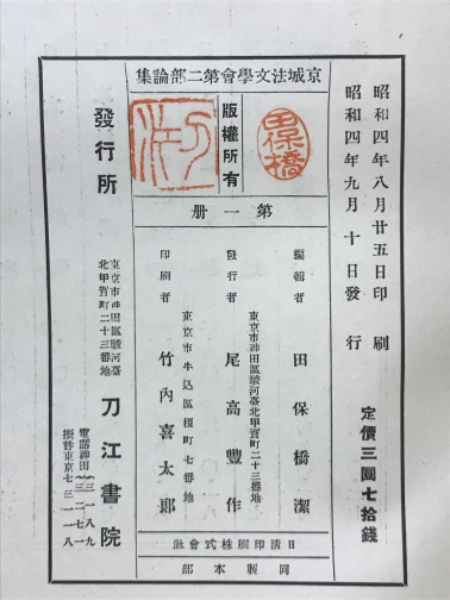 昭和四年八月廿五日印刷
昭和四年九月十日發行
定價三圓七拾錢
京城法文學會第二部論集
田保橋
版權所有
刀江
第一册
編輯者 田保橋潔
東京市神田區駿河臺北甲賀町二十三番地
發行者 尾高豐作
東京市牛込區榎町七番地
印刷者 竹內喜太郎
日清印刷株式會社
同製本部
發行所
東京市神田區駿河臺
北甲賀町二十三番地
刀江書院
電話神田
振替東京七三一一八